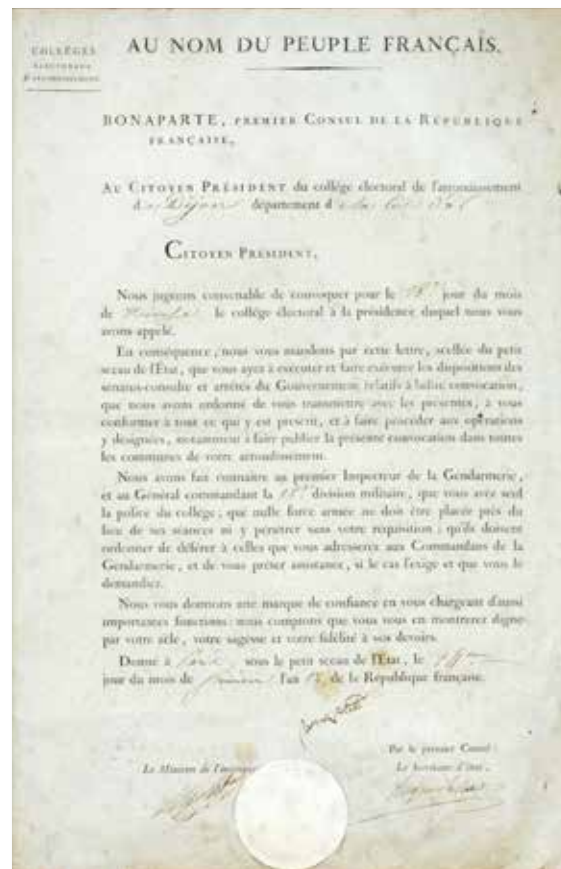 COLLÈGES
ÉLECTORAUX
D'ARRONDISSEMENT
AU NOM DU PEUPLE FRANÇAIS.
BONAPARTE, PREMIER CONSUL DE LA RÉPUBLIQUE
FRANÇAISE,
AU CITOYEN PRÉSIDENT du collége électoral de l'arrondissement
d Dijon département d
CITOYEN PRÉSIDENT,
Nous jugeons convenable de convoquer pour le jour du mois
de le collége électoral à la présidence duquel nous vous
avons appelé.
En conséquence, nous vous mandons par cette lettre, scellée du petit
sceau de l'État, que vous ayez à exécuter et faire exécuter les dispositions des
senatus-consulte et arrêtés du Gouvernement relatifs à ladite convocation,
que nous avons ordonné de vous transmettre avec les présentes, à vous
conformer à tout ce qui y est prescrit, et à faire procéder aux opérations
y désignées, notamment à faire publier la présente convocation dans toutes
les communes de votre arrondissement.
Nous avons fait connaître au premier Inspecteur de la Gendarmerie,
et au Général commandant la 18.e division militaire, que vous avez seul
la police du collége; que nulle force armée ne doit être placée près du
lieu de ses séances ni y pénétrer sans votre réquisition; qu'ils doivent
ordonner de déférer à celles que vous adresserez aux Commandans de la
Gendarmerie, et de vous prêter assistance, si le cas l'exige et que vous le
demandiez.
Nous vous donnons une marque de confiance en vous chargeant d'aussi
importantes fonctions: nous comptons que vous vous en montrerez digne
par votre zèle, votre sagesse et votre fidélité à vos devoirs.
Donné à Paris sous le petit sceau de l'État, le
jour du mois de l'an de la République française.
Par le premier Consul:
Le Ministre de l'intérieur
Le Secrétaire d'état,